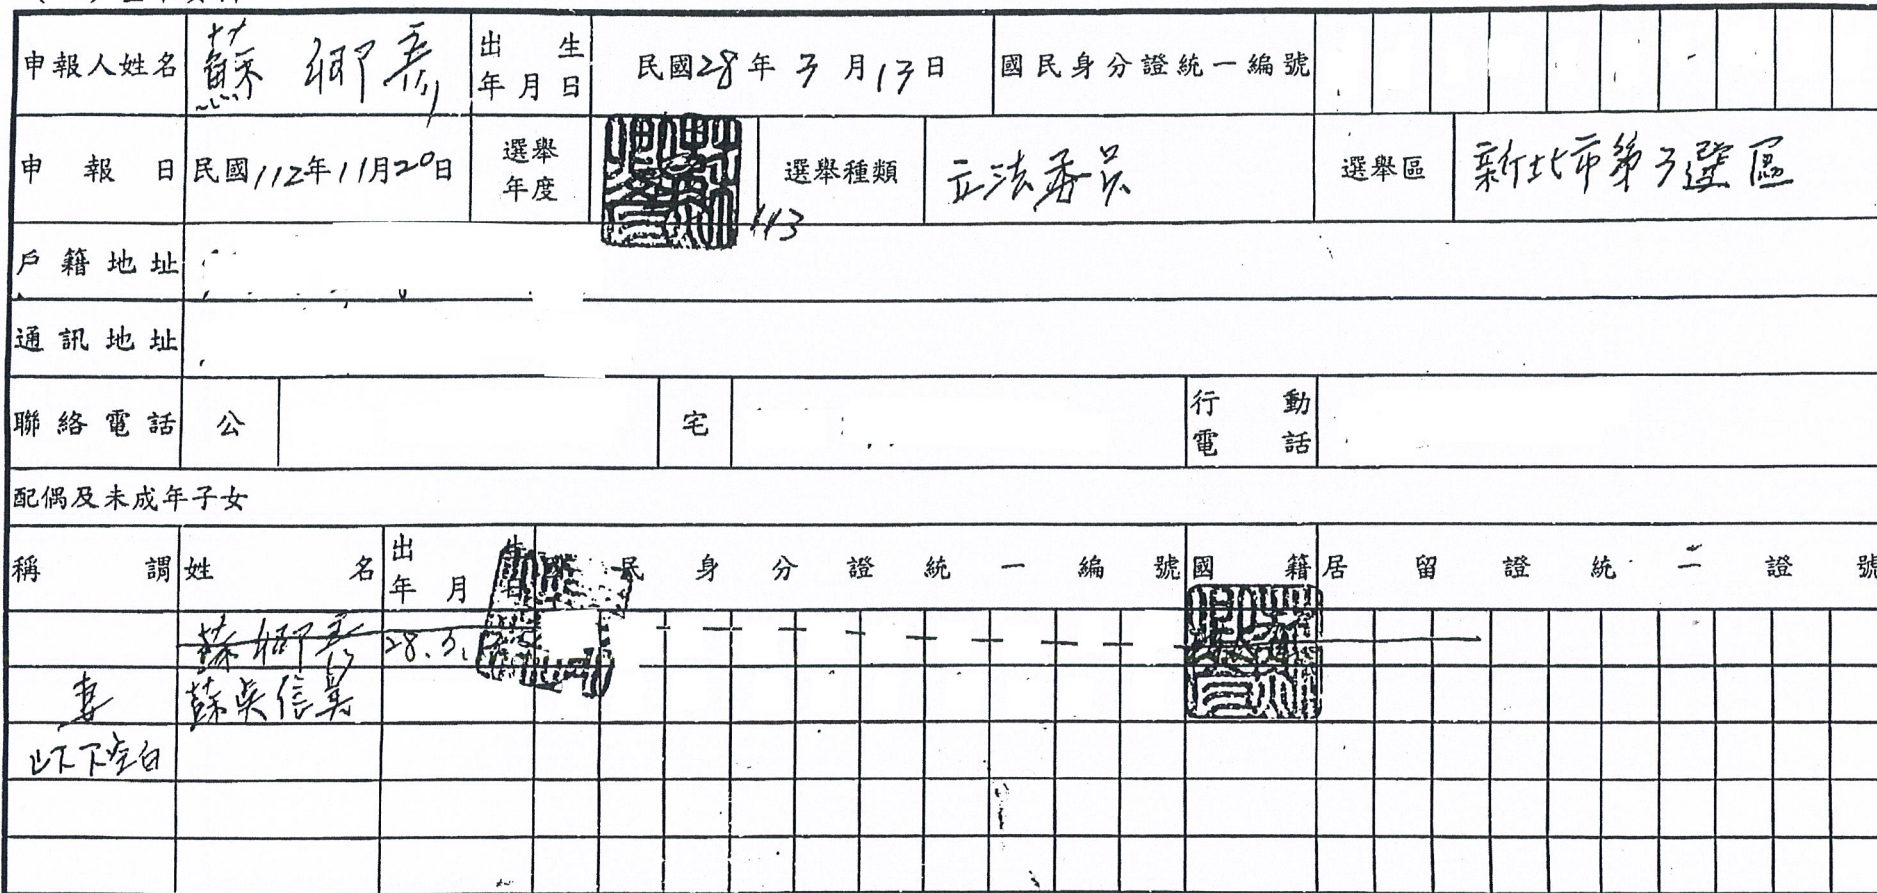 申報人姓名 蘇卿彥 出生年月日 民國28年3月13日 國民身分證統一編號
申報日 民國112年11月20日 選舉年度 113 選舉種類 立法委員 選舉區 新北市第3選區
戶籍地址
通訊地址
聯絡電話 公 宅 行動電話
配偶及未成年子女
稱謂 姓名 出生年月日 國民身分證統一編號 國籍 居留證統一證號
蘇卿彥 28.3.
妻 蘇吳信美
以下空白